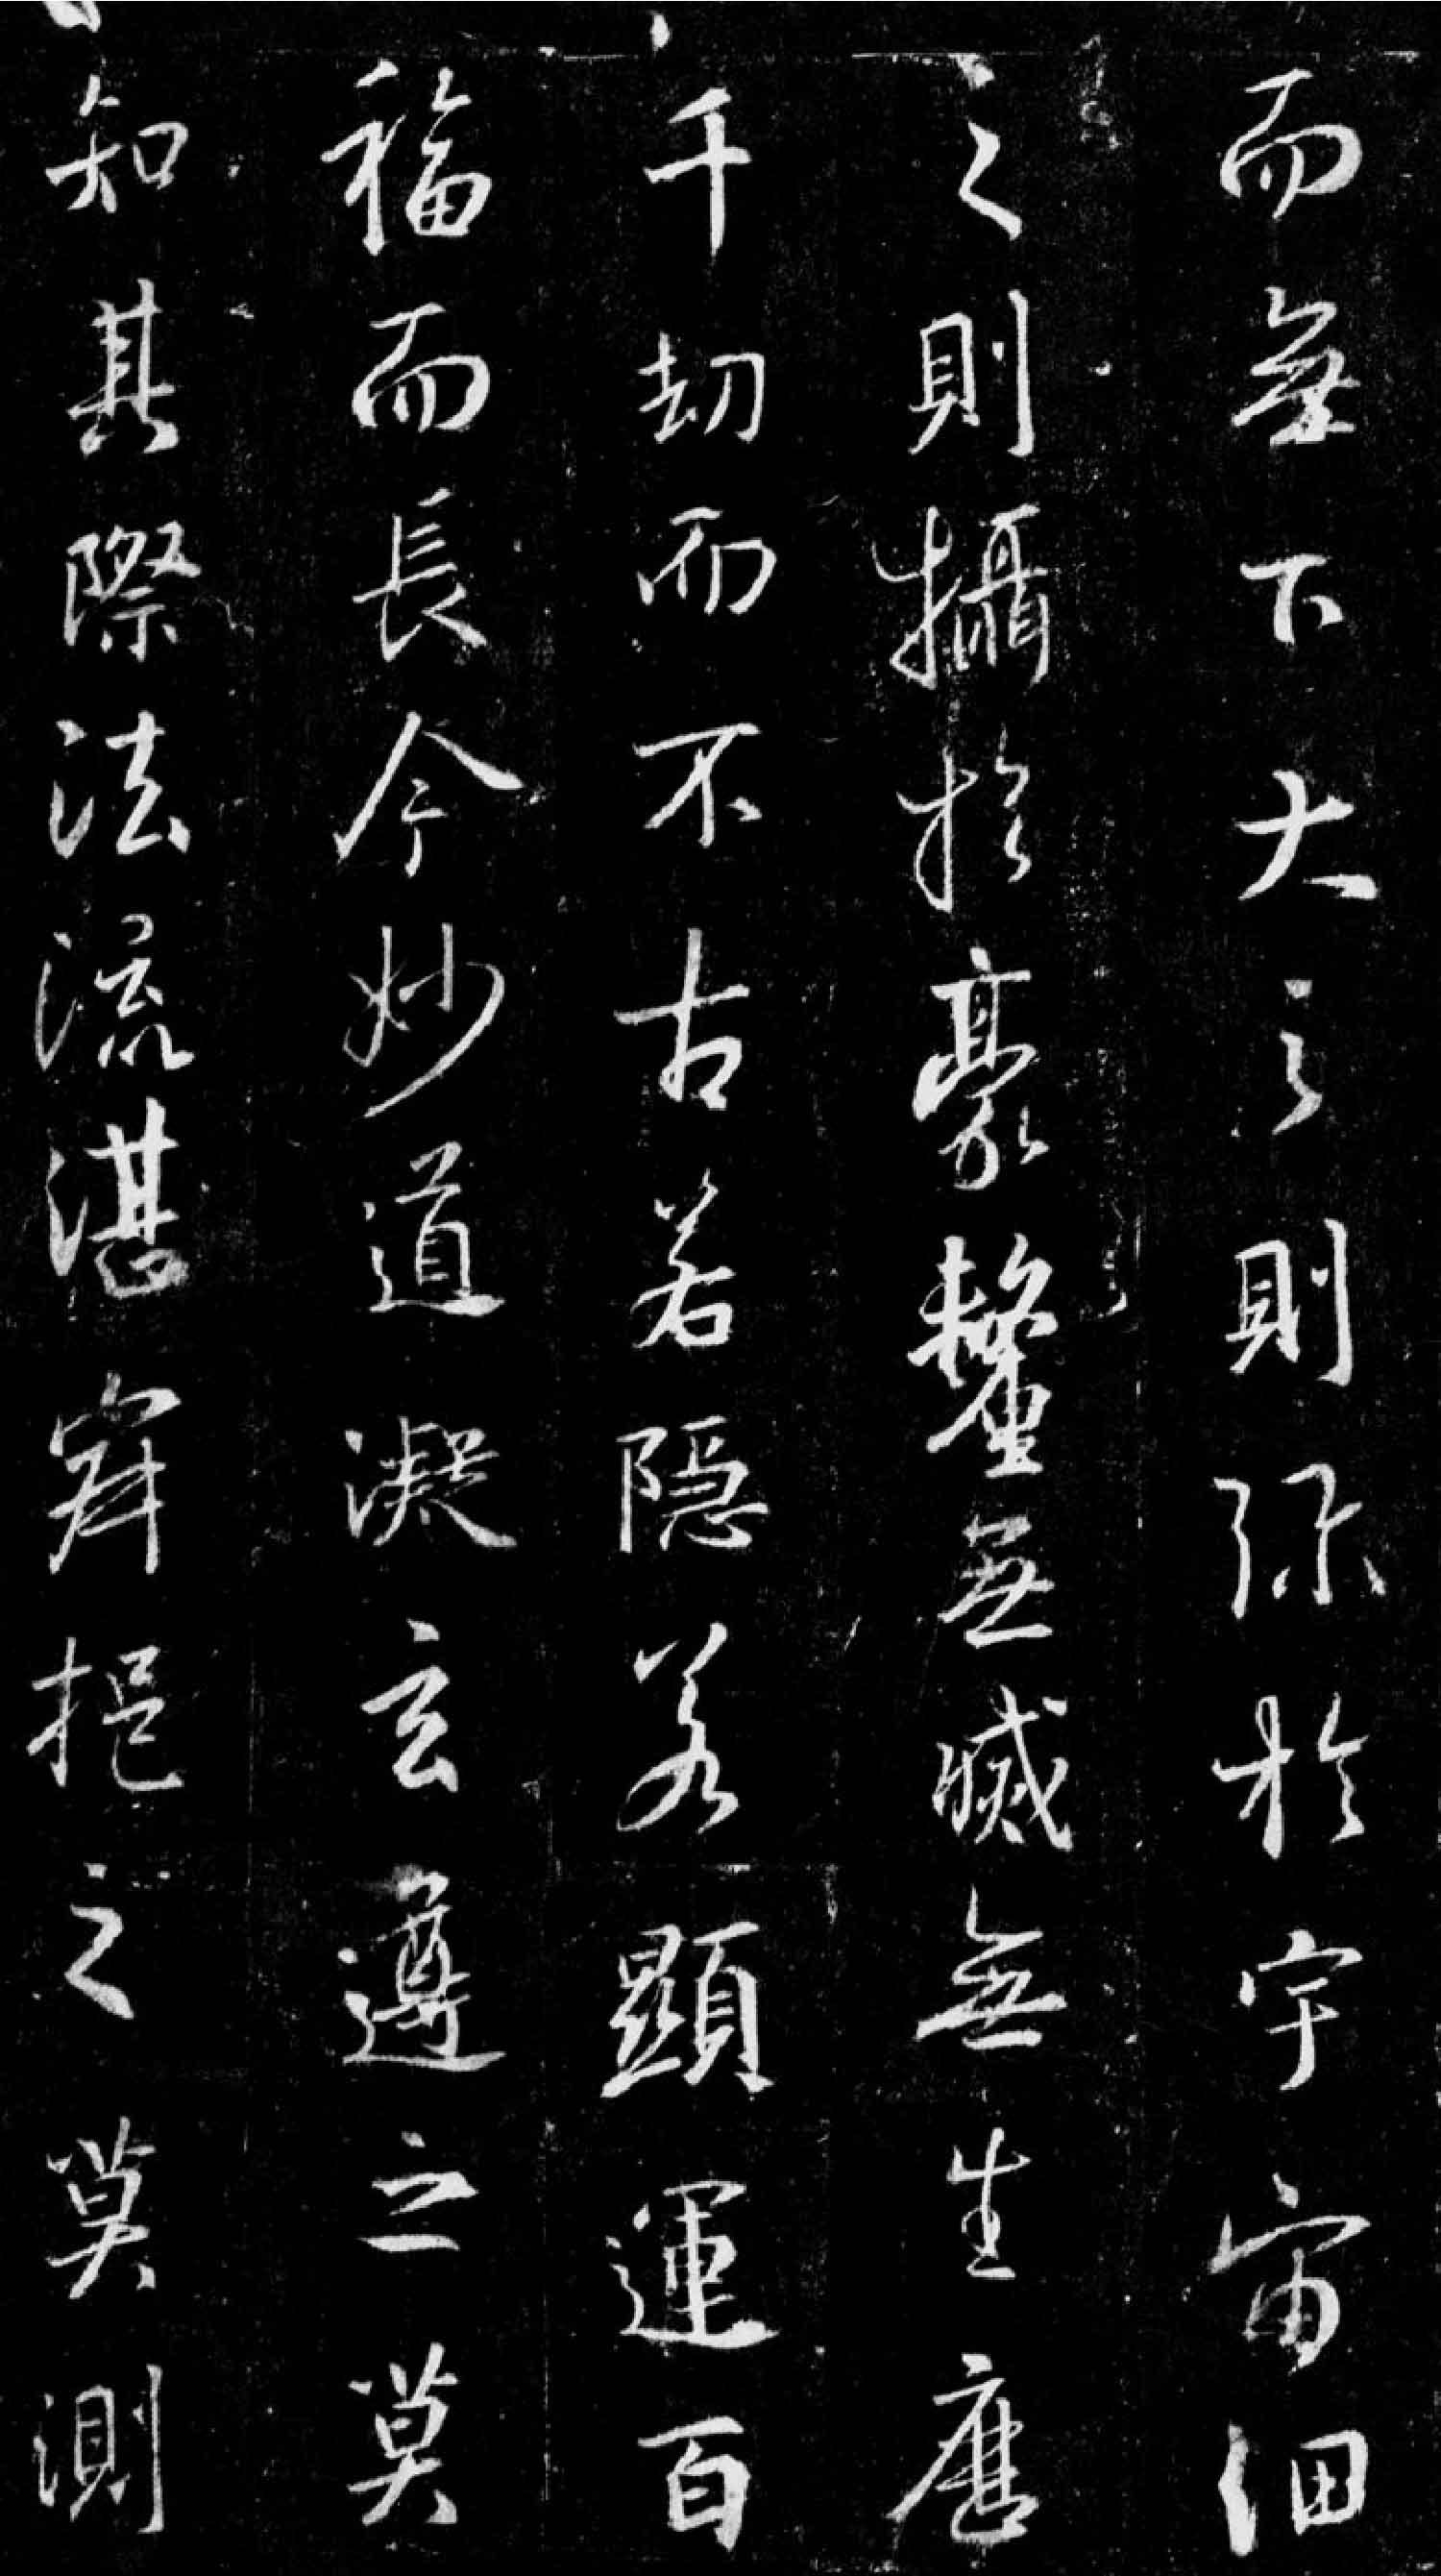 而無下大之則弥於宇宙細
之則攝於豪釐無滅無生歷
千劫而不古若隱若顯運百
福而長今妙道凝玄遵之莫
知其際法流湛寂挹之莫測